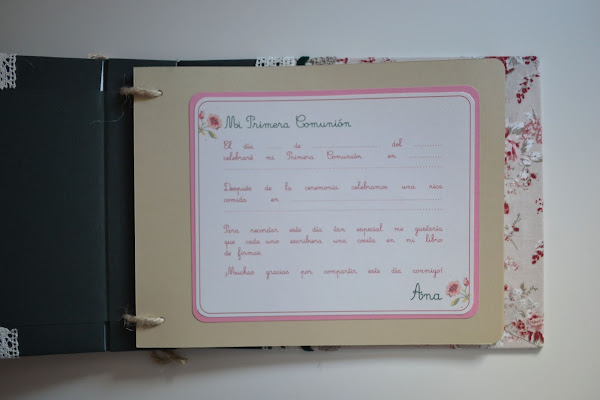 Mi Primera Comunión
El día ........ de ........................ del ..........
celebraré mi Primera Comunión en ............
Después de la ceremonia celebramos una rica
comida en ................................................
Para recordar este día tan especial me gustaría
que cada uno escribiera una cosita en mi libro
de firmas.
¡Muchas gracias por compartir este día conmigo!
Ana